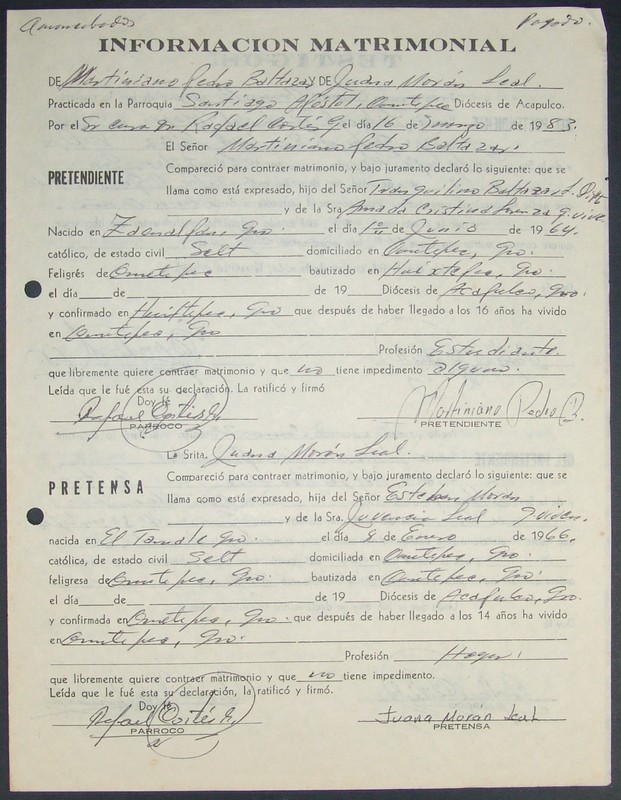 Amonestados Pagado.
INFORMACION MATRIMONIAL
DE Martiniano Pedro Baltazar Y DE Juana Morán Leal.
Practicada en la Parroquia Santiago Apóstol, Ometepec Diócesis de Acapulco.
Por el Sr cura Dn Rafael Cortés G el día 16 de marzo de 1983.
El Señor Martiniano Pedro Baltazar.
PRETENDIENTE
Compareció para contraer matrimonio, y bajo juramento declaró lo siguiente: que se
llama como está expresado, hijo del Señor Tranquilino Baltazar
y de la Sra. Amada Cristina
Nacido en Gro. el día 1º de Junio de 1964.
católico, de estado civil Solt domiciliado en Ometepec, Gro.
Feligrés de Ometepec bautizado en Huixtepec, Gro.
el día de de 19 Diócesis de Acapulco, Gro.
y confirmado en Huixtepec, Gro que después de haber llegado a los 16 años ha vivido
en Ometepec, Gro
Profesión Estudiante.
que libremente quiere contraer matrimonio y que no tiene impedimento alguno.
Leída que le fué esta su declaración. La ratificó y firmó
Doy fé
Rafael Cortés G Martiniano Pedro B.
PARROCO PRETENDIENTE
La Srita. Juana Morán Leal.
PRETENSA
Compareció para contraer matrimonio, y bajo juramento declaró lo siguiente: que se
llama como está expresado, hija del Señor Esteban Morán
y de la Sra. Juvencia Leal viven.
nacida en El Tamale Gro. el día 8 de Enero de 1966.
católica, de estado civil Solt domiciliada en Ometepec, Gro.
feligresa de Ometepec, Gro. bautizada en Ometepec, Gro.
el día de de 19 Diócesis de Acapulco, Gro.
y confirmada en Ometepec, Gro. que después de haber llegado a los 14 años ha vivido
en Ometepec, Gro.
Profesión Hogar.
que libremente quiere contraer matrimonio y que no tiene impedimento.
Leída que le fué esta su declaración, la ratificó y firmó.
Doy fé
Rafael Cortés G Juana Morán Leal
PARROCO PRETENSA